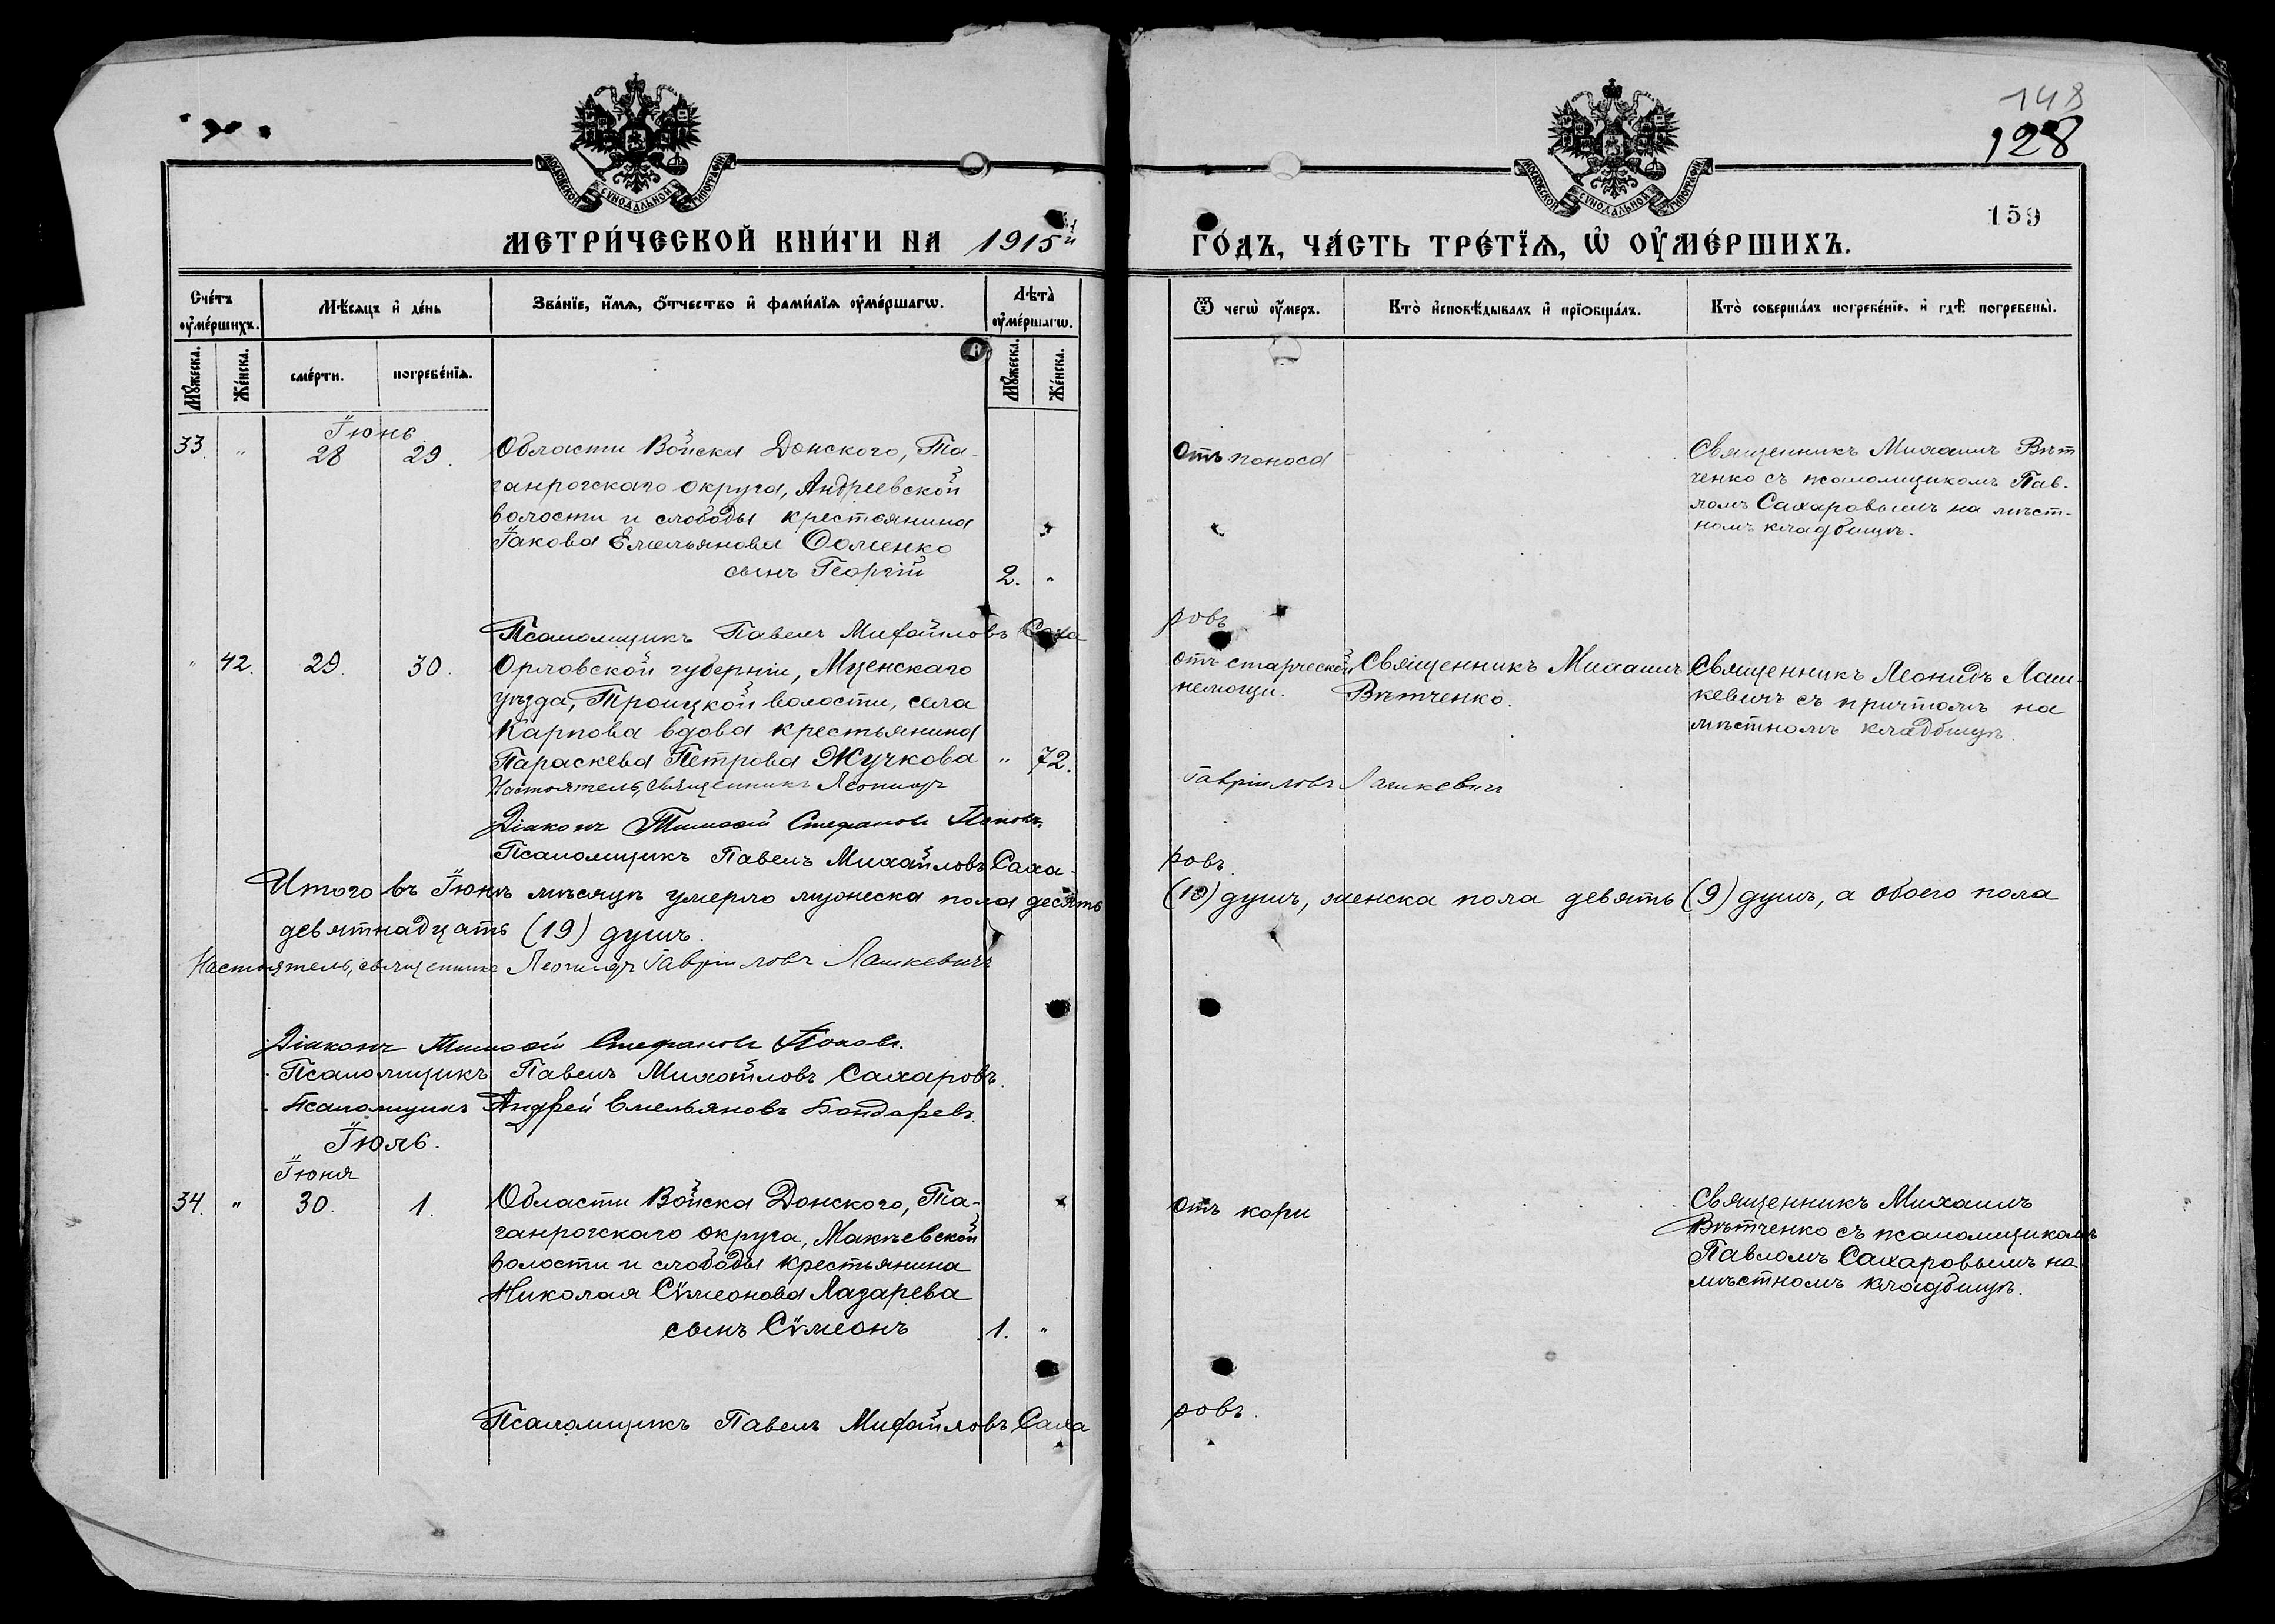 148
128
159
МОСКОВСКОЙ СѴНОДАЛЬНОЙ ТИПОГРАФІИ
МОСКОВСКОЙ СѴНОДАЛЬНОЙ ТИПОГРАФІИ
МЕТРИ́ЧЕСКОЙ КНИ́ГИ НА 1915й
ГО́ДЪ, ЧА́СТЬ ТРЕ́ТЇѦ, Ѡ҆ ОУ҆МЕ́РШИХЪ.
Сче́тъ оу҆ме́ршихъ.
Мѣ́сяцъ и҆ де́нь
Зва́нїе, и҆́мѧ, ѻ҆́тчество и҆ фами́лїѧ оу҆ме́ршагѡ.
Лѣ́та оу҆ме́ршагѡ.
Ѿ чегѡ̀ оу҆́меръ.
Кто̀ и҆сповѣ́дывалъ и҆ прїѡбща́лъ.
Кто̀ соверша́лъ погребе́нїе, и҆ гдѣ̀ погребены̀.
Мꙋ́жеска.
Же́нска.
сме́рти.
погребе́нїѧ.
Мꙋ́жеска.
Же́нска.
Іюнь.
33. " 28 29. Области Войска Донского, Та-
ганрогскаго округа, Андреевской
волости и слободы крестьянина
Іакова Емельянова Фоменко
сынъ Георгій 2. "
Отъ поноса
Священникъ Михаилъ Вѣт
ченко съ псаломщикомъ Пав-
ломъ Сахаровымъ на мѣст-
номъ кладбищѣ.
Псаломщикъ Павелъ Михайловъ Саха
ровъ
" 42. 29. 30. Орловской губерніи, Мценскаго
уѣзда, Троицкой волости, села
Карпова вдова крестьянина
Параскева Петрова Жучкова " 72.
отъ старческой
немощи.
Священникъ Михаилъ
Вѣтченко.
Священникъ Леонидъ Лаш-
кевичъ съ причтомъ на
мѣстномъ кладбищѣ.
Настоятель, священникъ Леонидъ
Гавріиловъ Лашкевичъ
Діаконъ Тимоѳей Стефановъ Поповъ.
Псаломщикъ Павелъ Михайловъ Саха-
ровъ.
Итого въ Іюнѣ мѣсяцѣ умерло мужеска пола десять
(10) душъ, женска пола девять (9) душъ, а обоего пола
девятнадцать (19) душъ.
Настоятель, священникъ Леонидъ Гавріиловъ Лашкевичъ
Діаконъ Тимоѳей Стефановъ Поповъ.
Псаломщикъ Павелъ Михайловъ Сахаровъ.
Псаломщикъ Андрей Емельяновъ Бондаревъ.
Іюль.
Іюня
34. " 30. 1. Области Войска Донского, Та-
ганрогскаго округа, Макѣевской
волости и слободы крестьянина
Николая Сѵмеонова Лазарева
сынъ Сѵмеонъ 1. "
Отъ кори
Священникъ Михаилъ
Вѣтченко съ псаломщикомъ
Павломъ Сахаровымъ на
мѣстномъ кладбищѣ.
Псаломщикъ Павелъ Михайловъ Саха
ровъ.